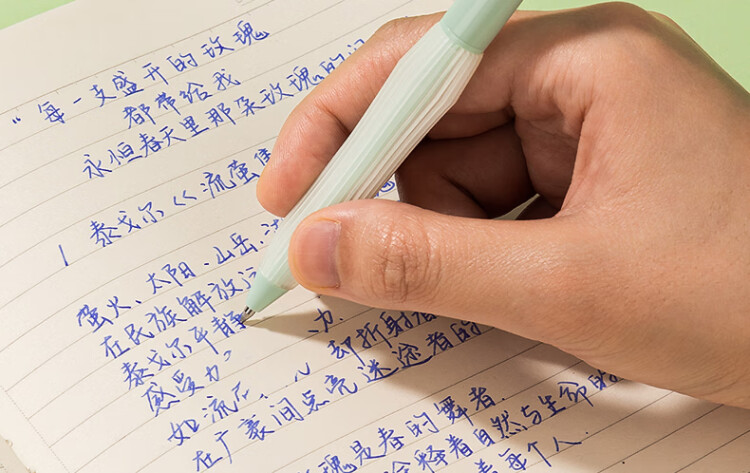 “每一支盛开的玫瑰
都带给我
永恒春天里那朵玫瑰的问
泰戈尔《流萤集
萤火、太阳、山岳、
在民族解放
泰戈尔平静
感受力。 力
如流石 却折射着
在广袤间点亮迷途者的
瑰是春的舞者
释着自然与生命的
每个人